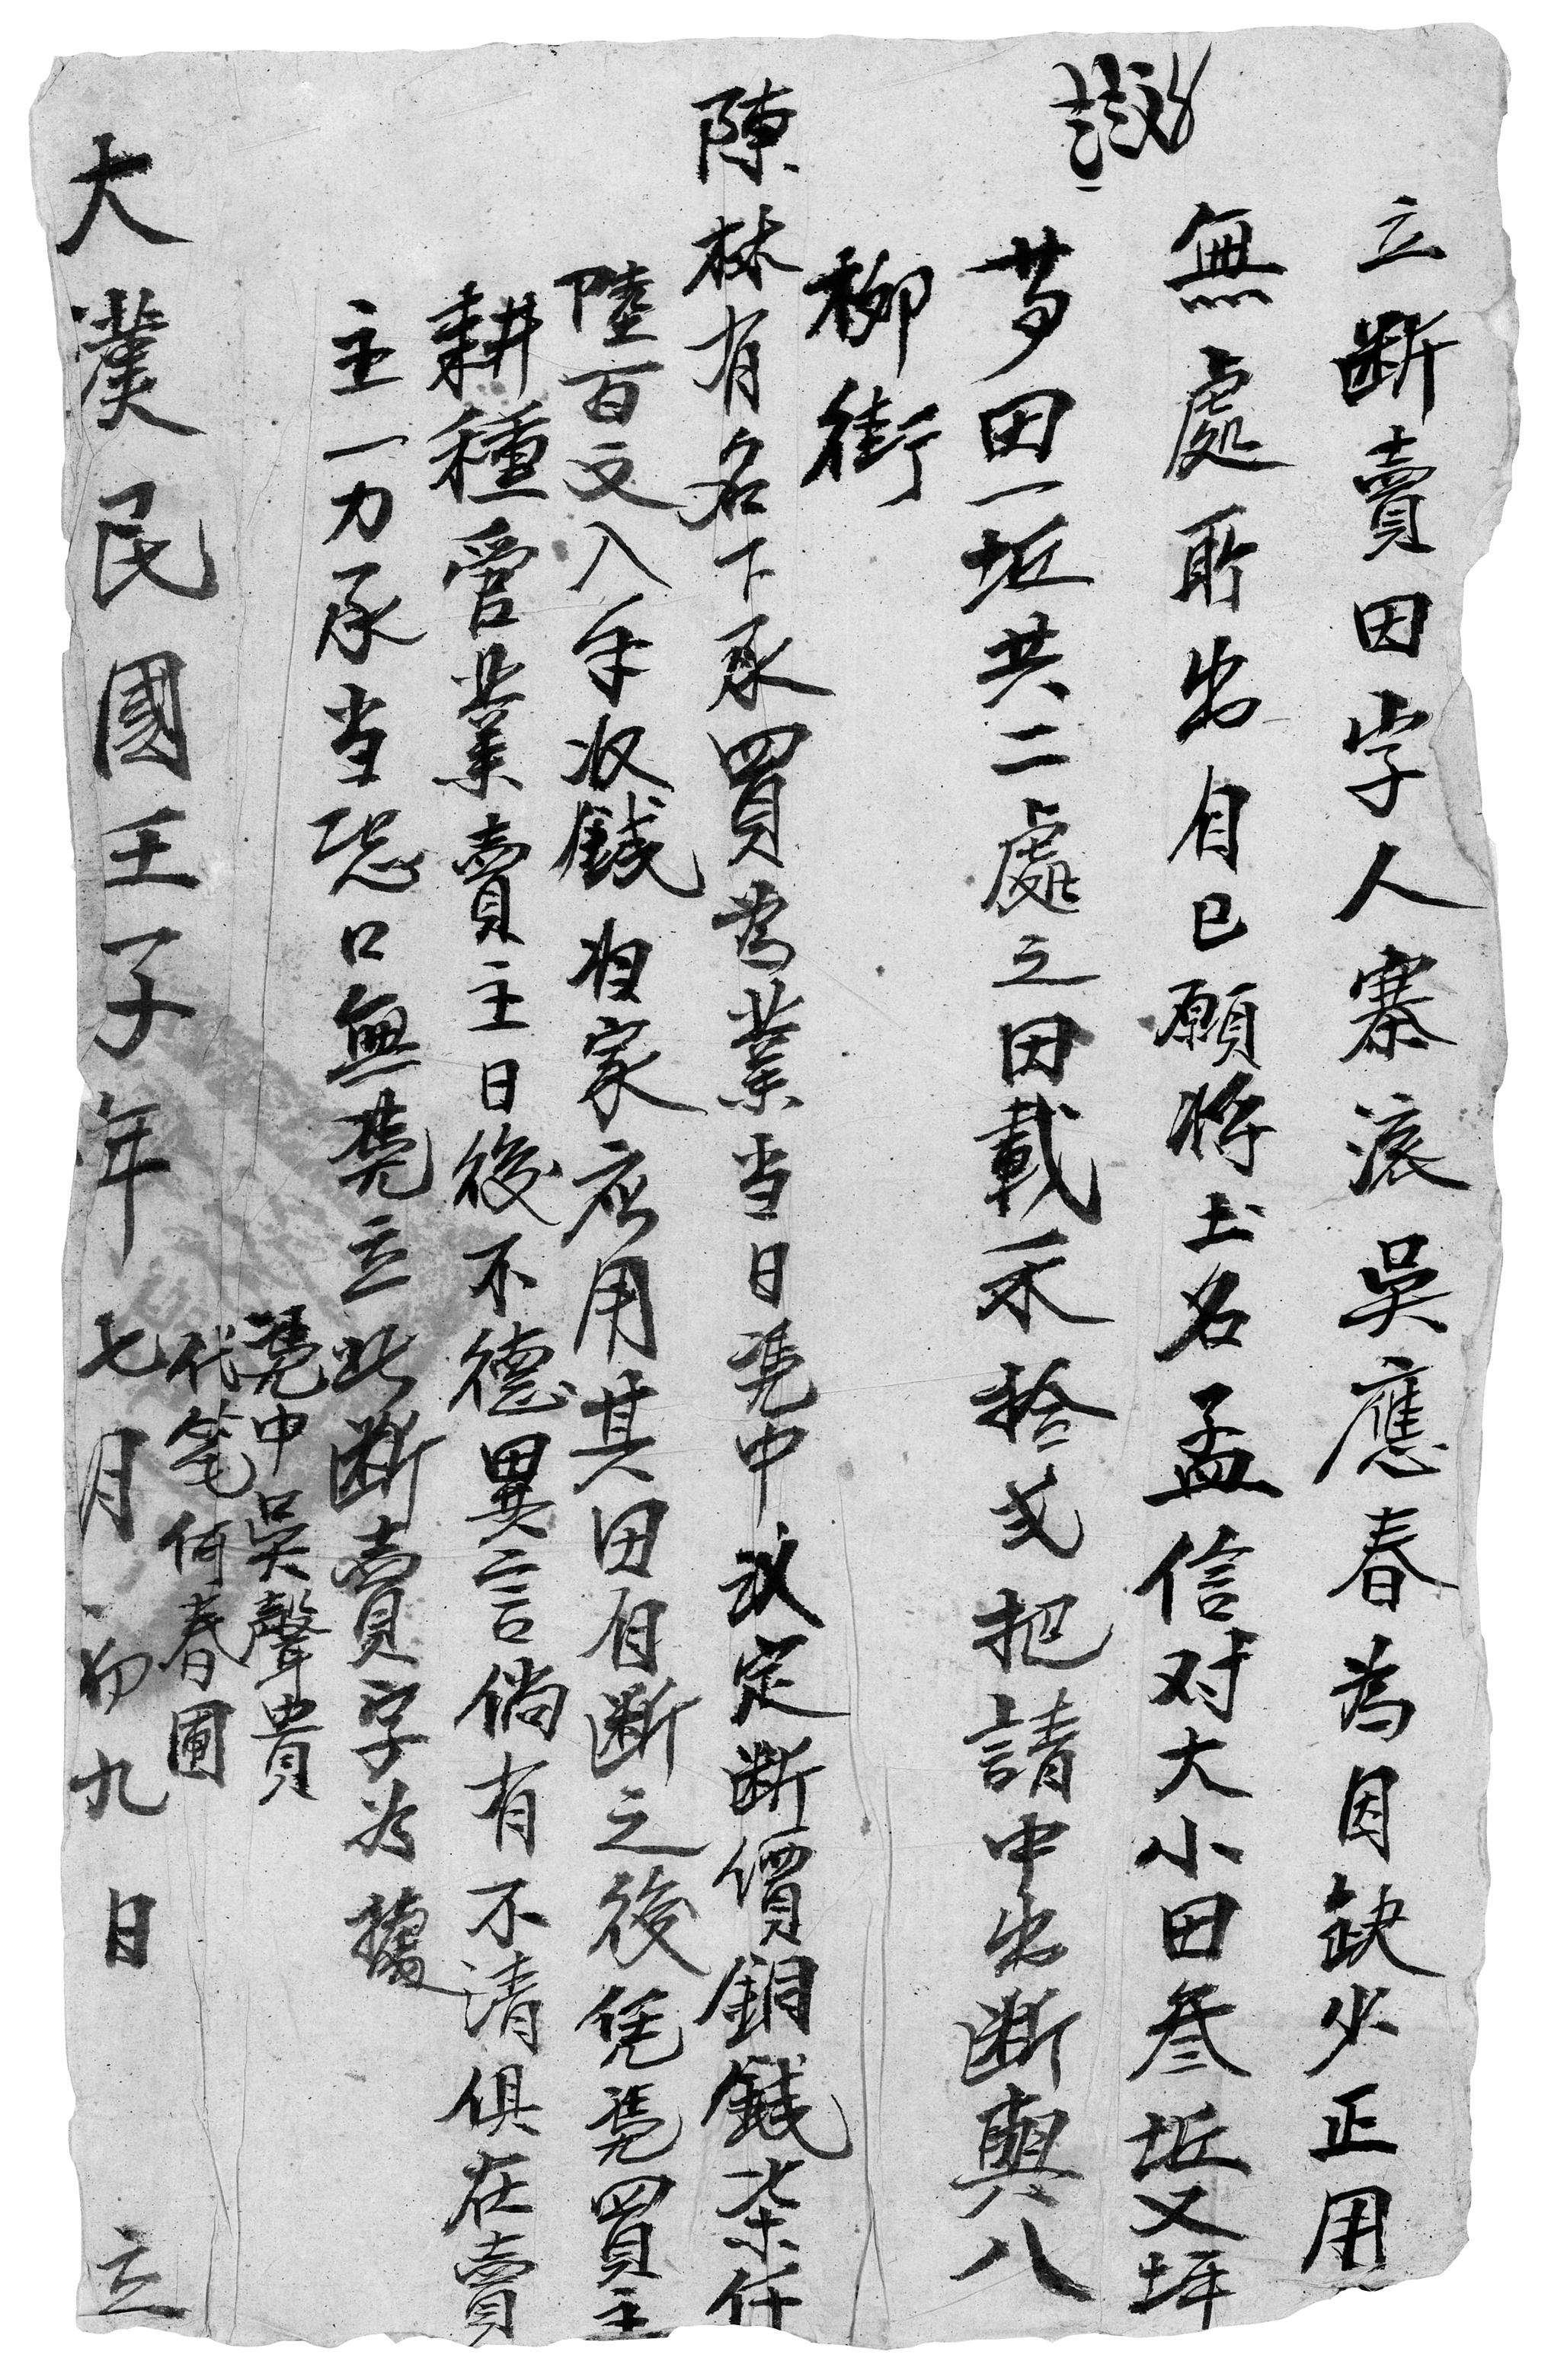 立断賣田字人寨滚吳應春為因缺少正用
無處所出自己願將土名孟信对大小田叁坵又坪
夢田一坵共二處之田載禾拾弍把請中出断與八
柳街
陳林有名下承買為業当日凴中议定断價銅錢柒仟
陸百文入手收錢自家应用其田自断之後凭凴買主
耕種管業賣主日後不德異言倘有不清俱在賣
主一力承当恐口無凴立此断賣字為據
凴中吳聲貴
代笔何春圃
大漢民國壬子年七月初九日立